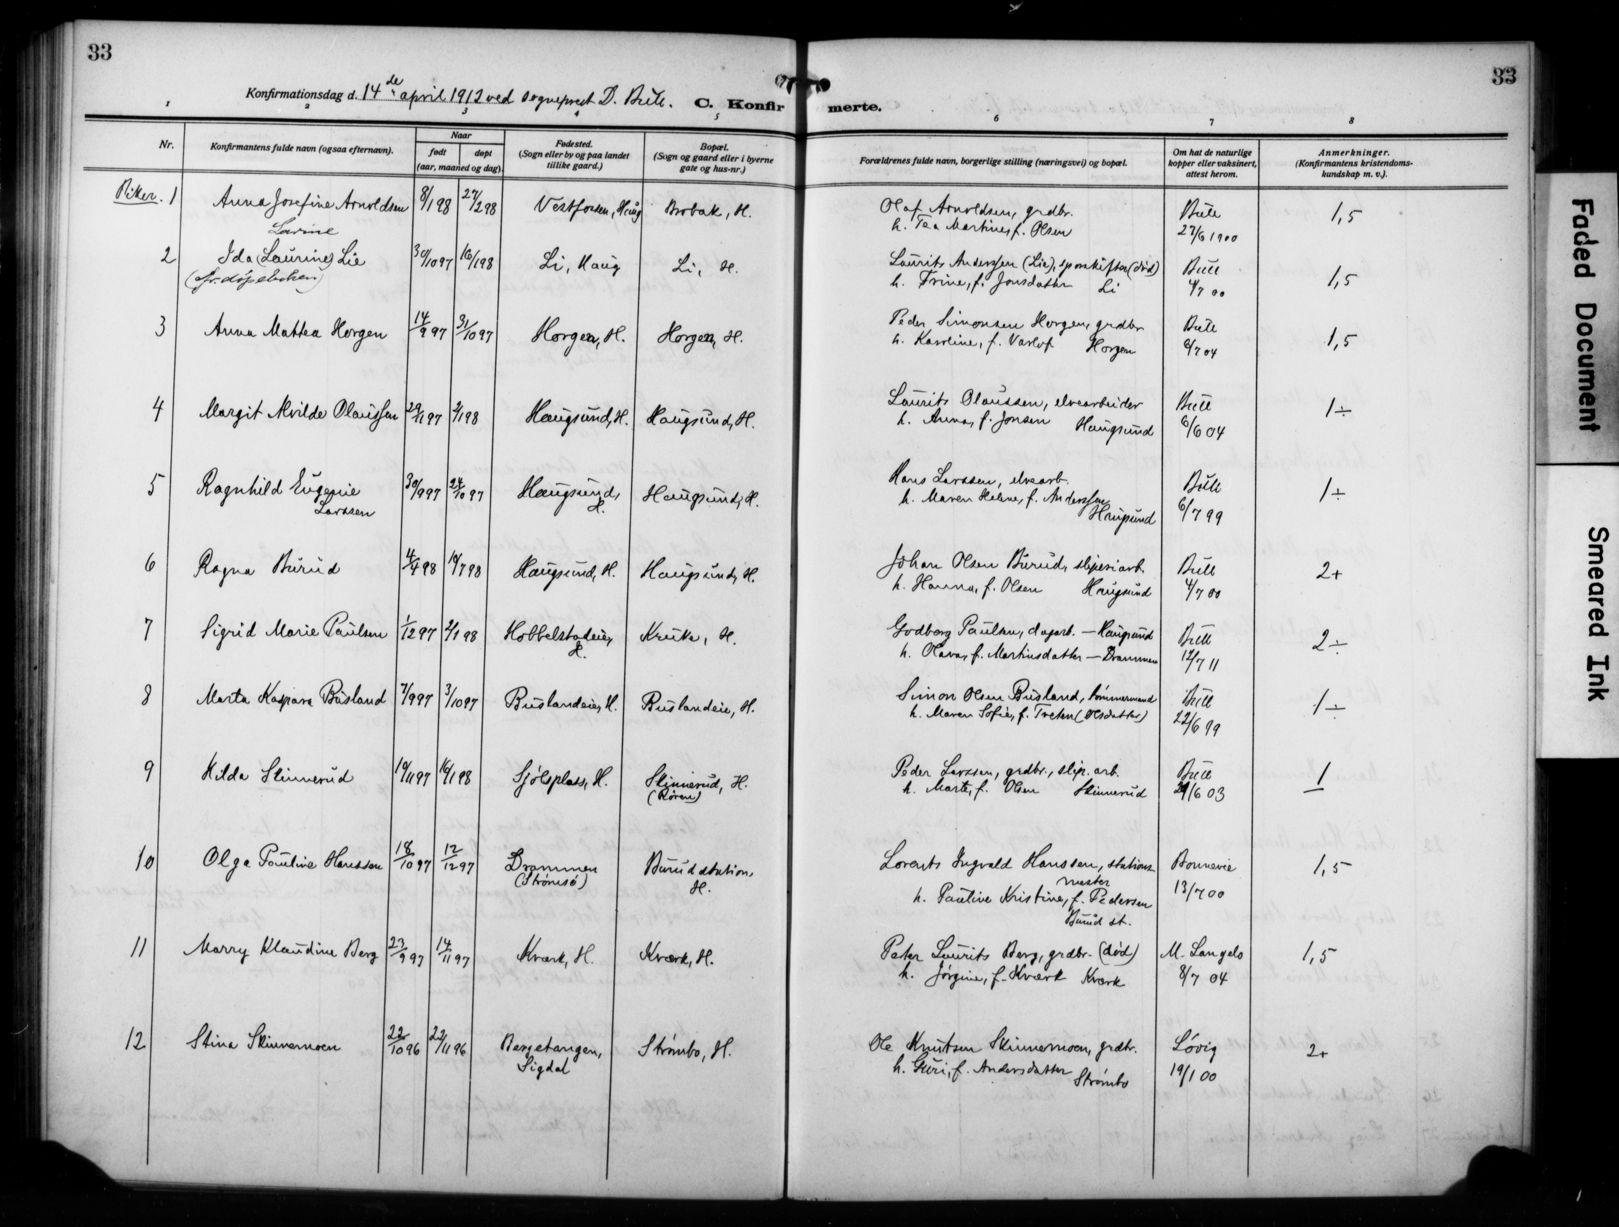 33
33
Konfirmationsdag d. 14de april 1912 ved sogneprest D. Bull. C. Konfirmerte.
1 2 3 4 5 6 7 8
Nr.
Konfirmantens fulde navn (ogsaa efternavn).
Naar
født
døpt
(aar, maaned og dag).
Fødested.
(Sogn eller by og paa landet
tillike gaard.)
Bopæl.
(Sogn og gaard eller i byerne
gate og hus-nr.)
Forældrenes fulde navn, borgerlige stilling (næringsvei) og bopæl.
Om hat de naturlige
kopper eller vaksinert,
attest herom.
Anmerkninger.
(Konfirmantens kristendoms-
kundskap m. v.).
Piker. 1 Anna Josefine Arnoldsen 8/1 98 27/2 98 Vestfossen, Haug Brobak, H. Olaf Arnoldsen, grdbr. Bull 1,5
h. Tea Martine, f. Olsen 27/6 1900
Lovine
2 Ida (Laurine) Lie 30/10 97 16/1 98 Li, Haug Li, H. Laurits Anderssen (Lie), sporskifter (død) Bull 1,5
(efr. døpeboken) h. Trine, f. Jonsdatter Li 4/7 00
3 Anna Mathea Horgen 14/9 97 31/10 97 Horgen, H. Horgen, H. Peder Simonsen Horgen, grdbr. Bull 1,5
h. Karoline, f. Varlof Horgen 6/7 04
4 Margit Alvilde Olaussen 29/11 97 2/1 98 Haugsund, H. Haugsund, H. Laurits Olaussen, elvearbeider Bull 1÷
h. Anna, f. Jonsen Haugsund 6/6 04
5 Ragnhild Eugenie 30/9 97 24/10 97 Haugsund, Haugsund, H. Hans Larssen, elvearb. Bull 1÷
Larssen H. h. Maren Helene, f. Anderssen 6/7 99
Haugsund
6 Ragna Burud 4/4 98 10/7 98 Haugsund, H. Haugsund, H. Johan Olsen Burud, sliperiarb. Bull 2+
h. Hanna, f. Olsen Haugsund 4/7 00
7 Sigrid Marie Paulsen 1/12 97 2/1 98 Hobbelstadeie, Kruke, H. Godberg Paulsen, dagarb. — Haugsund Bull 2÷
H. h. Olava, f. Martinsdatter — Drammen 12/7 11
8 Marta Kaspara Busland 7/9 97 3/10 97 Buslandeie, H. Buslandeie, H. Simon Olsen Busland, tømmermand Bull 1÷
h. Maren Sofie, f. Treten (Olsdatter) 22/6 99
9 Hilda Skinnerud 19/11 97 16/1 98 Sjølsplass, H. Skinnerud, H. Peder Larssen, grdbr., slip. arb. Bull 1
(Røren) h. Marte, f. Olsen Skinnerud 29/6 03
10 Olga Pauline Hanssen 18/10 97 12/12 97 Drammen Burud station, Lorents Ingvald Hanssen, stations- Bonnevie 1,5
(Strømsø) H. mester 13/7 00
h. Pauline Kristine, f. Pedersen
Burud st.
11 Marry Klaudine Berg 23/9 97 14/11 97 Kværk, H. Kværk, H. Peter Laurits Berg, grdbr. (død) M. Langelo 1,5
h. Jørgine, f. Kværk Kværk 8/7 04
12 Stina Skinnemoen 22/10 96 22/11 96 Bergetangen, Strømbo, H. Ole Knutsen Skinnemoen, grdbr. Løvig 2+
Sigdal h. Guri, f. Andersdatter Strømbo 19/1 00
Faded Document
Smeared Ink